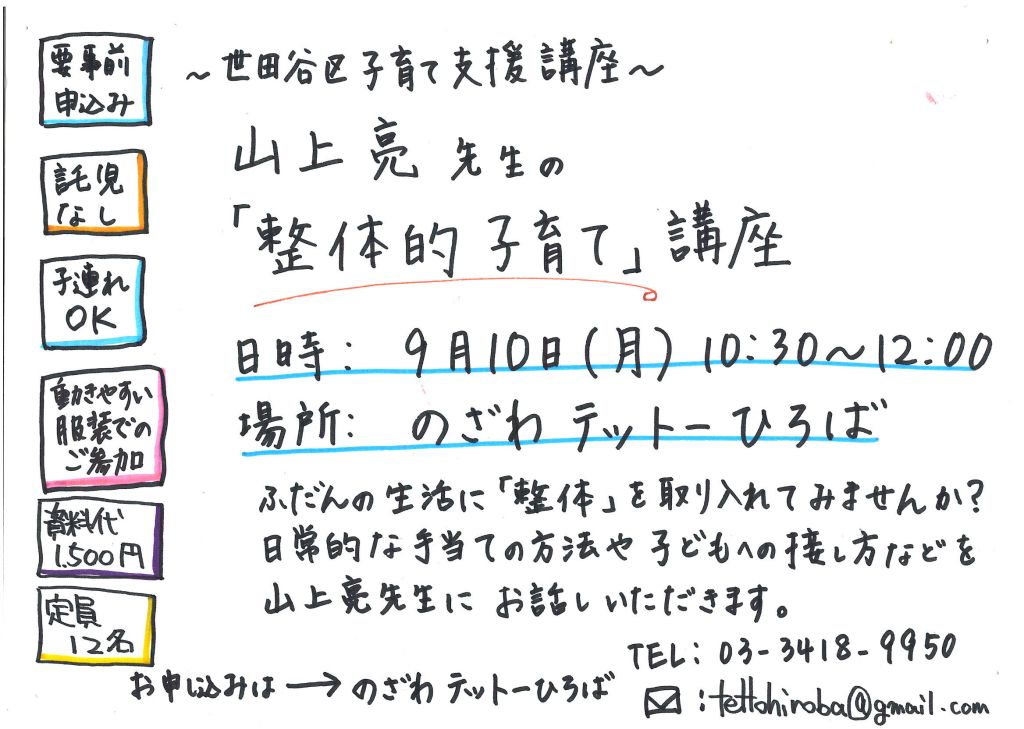 要事前
申込み
託児
なし
子連れ
OK
動きやすい
服装での
ご参加
資料代
1.500円
定員
12名
～世田谷区子育て支援講座～
山上亮先生の
「整体的子育て」講座
日時： 9月10日(月) 10:30～12:00
場所： のざわテットーひろば
ふだんの生活に「整体」を取り入れてみませんか?
日常的な手当ての方法や子どもへの接し方などを
山上亮先生にお話しいただきます。
TEL: 03-3418-9950
お申し込みは→のざわテットーひろば
:tettohiroba@gmail.com